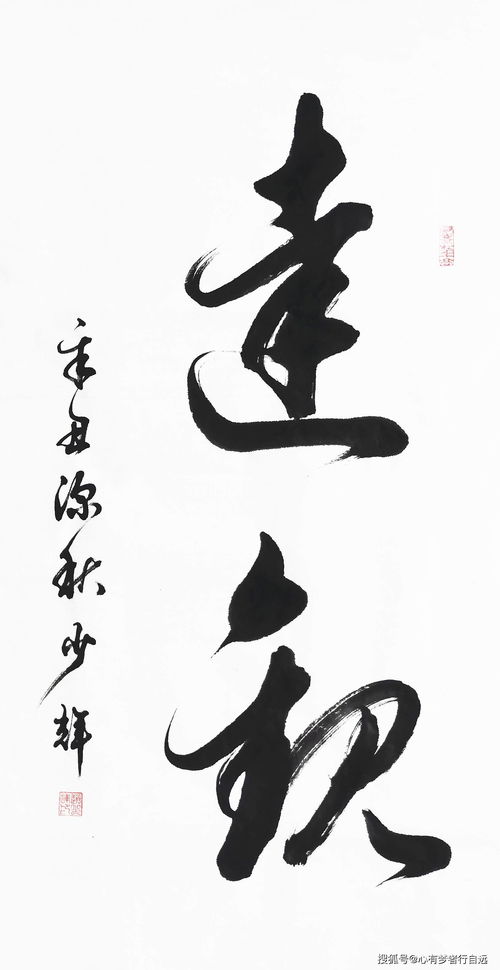 達觀
辛丑深秋少輝
搜狐号@心有梦者行自远